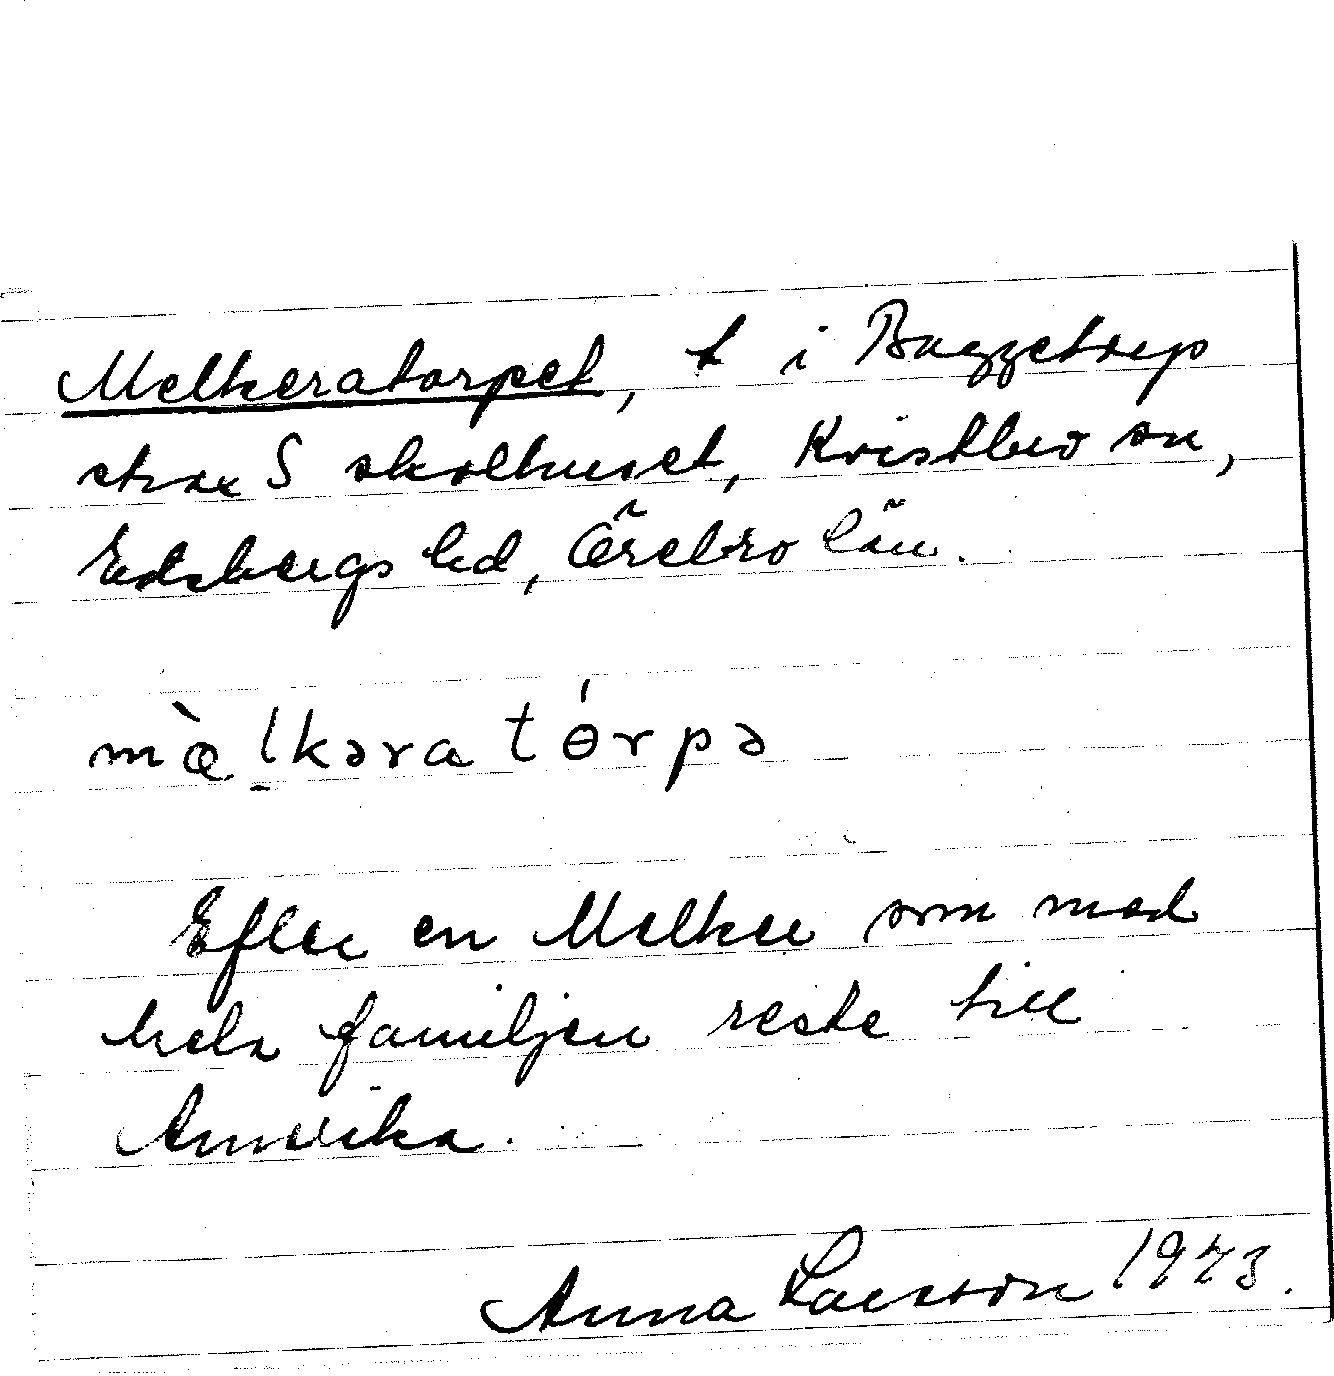 Melkeratorpet, t i Baggetorp
strax S skolhuset, Kvistbro sn,
Edsbergs hd, Örebro län.
mæ̀lkəratɵ́rpə
Efter en Melker som med
hela familjen reste till
Amerika.
Anna Larsson 1943.